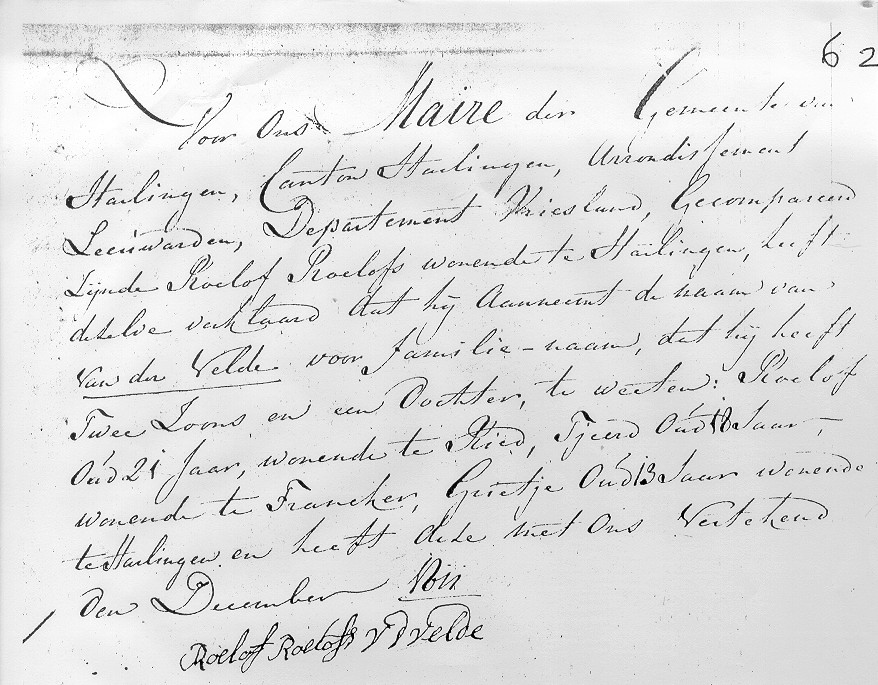 62
Voor Ons Maire der Gemeente van
Harlingen, Canton Harlingen, Arrondissement
Leeuwarden, Departement Vriesland, Gecompareerd
Zijnde Roelof Roelofs wonende te Harlingen, heeft
dezelve verklaard dat hij Aanneemt de naam van
Van der Velde voor familie-naam, dat hij heeft
Twee Zoons en een Dochter, te weeten: Roelof
Oud 21 Jaar, wonende te Ried, Tjeerd Oud 18 Jaar,
wonende te Franeker, Grietje Oud 13 Jaar wonende
te Harlingen en heeft deze met Ons Vertekend
den December 1811
Roelof Roelofs V d Velde